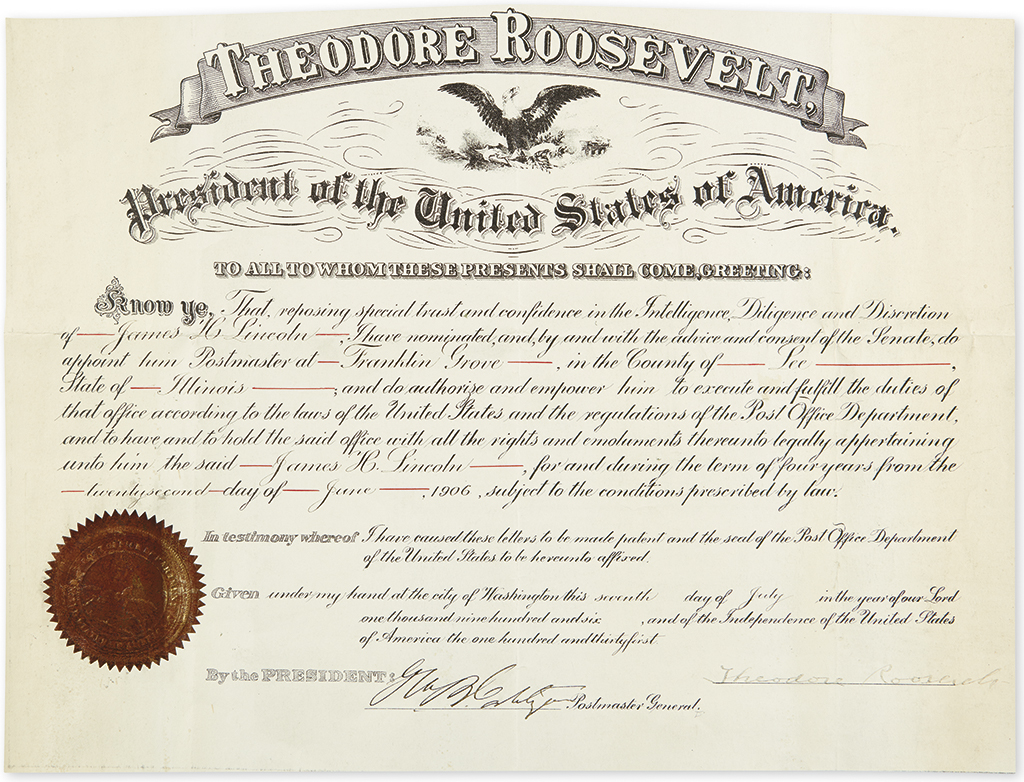 THEODORE ROOSEVELT,
President of the United States of America.
TO ALL TO WHOM THESE PRESENTS SHALL COME, GREETING:
Know ye, That, reposing special trust and confidence in the Intelligence, Diligence and Discretion
of James H. Lincoln, I have nominated, and, by and with the advice and consent of the Senate, do
appoint him Postmaster at Franklin Grove, in the County of Lee,
State of Illinois, and do authorize and empower him to execute and fulfill the duties of
that office according to the laws of the United States and the regulations of the Post Office Department,
and to have and to hold the said office with all the rights and emoluments thereunto legally appertaining
unto him the said James H. Lincoln, for and during the term of four years from the
twenty second day of June, 1906, subject to the conditions prescribed by law.
In testimony whereof I have caused these letters to be made patent and the seal of the Post Office Department
of the United States to be hereunto affixed.
Given under my hand at the city of Washington this seventh day of July in the year of our Lord
one thousand nine hundred and six, and of the Independence of the United States
of America the one hundred and thirty first
By the PRESIDENT: Theodore Roosevelt
Postmaster General.